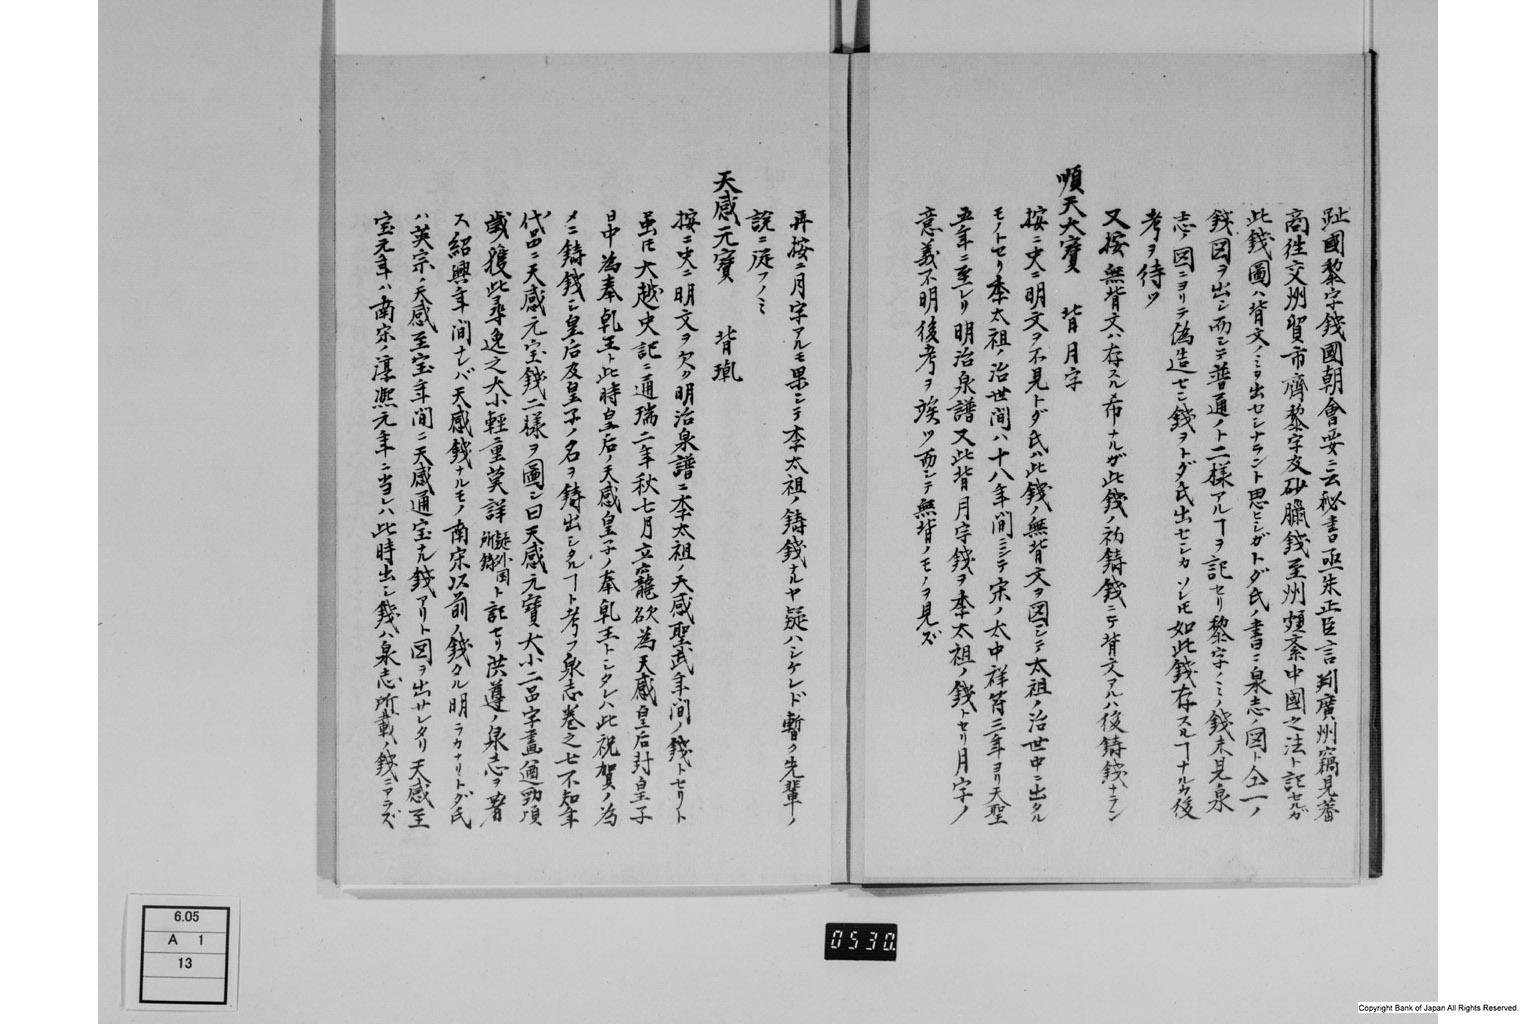 趾國黎字錢國朝會要ニ云秘書亟朱正臣言判廣州竊見蕃
商往交州貿市齎黎字及砂臘錢至州頗紊中國之法ト記セルガ
此錢圖ハ背文ノミヲ出セシナラント思ヒシガトダ氏ノ書ヨニ泉志ノ図ト仝一ノ
錢図ヲ出シ而シテ普通ノト二樣アルヿヲ記セリ黎字ノミノ錢未見泉
志ノ図ニヨリテ偽造セシ錢ヲトダ氏出セシカソレ𪜈如此錢存スルヿナルヤ後
考ヲ待ツ
又按無背文ハ存スル希ナルガ此錢ノ初鑄錢ニテ背文アルハ後鑄錢ナラン
順天大寶 背月字
按ニ史ニ明文ヲ不見トダ氏ハ此錢ノ無背文ヲ図シテ太祖ノ治世中ニ出タル
モノトセリ李太祖ノ治世間ハ十八年間ニシテ宋ノ太中祥符三年ヨリ天聖
五年ニ至レリ明治泉譜又此背月字錢ヲ李太祖ノ錢トセリ月字ノ
意義不明後考ヲ竢ツ而シテ無背ノモノヲ見ズ
再按ニ月字アルモ果シテ李太祖ノ鑄錢ナルヤ疑ハシケレド暫ク先輩ノ
説ニ従フノミ
天感元寶 背乹
按ニ史ニ明文ヲ欠ク明治泉譜ニ李太祖ノ天感聖武年間ノ錢トセリト
虽𪜈大越史記ニ通瑞二年秋七月立寵欲為天感皇后封皇子
日中為奉乹王ト此時皇后ノ天感皇子ノ奉乹王トシタレハ此祝賀ノ為
メニ鑄錢シ皇后及皇子ノ名ヲ鑄出シタルヿト考フ泉志巻之七不知年
代品ニ天感元宝錢二樣ヲ圖シ曰天感元寶大小二品字畫遒勁頃
歳獲此尋逸之大小輕重莫詳 疑外国所鑄 ト記セリ洪遵ノ泉志ヲ著
ス紹興年間ナレバ天感錢ナルモノ南宋以前ノ錢タル明ラカナリトダ氏
ハ英宗ノ天感至宝年間ニ天感通宝ナル錢アリト図ヲ出サレタリ天感至
宝元年ハ南宋ノ淳熙元年ニ当レハ此時出シ錢ハ泉志所載ノ錢ニアラズ
6.05
A 1
13
0530.
Copyright Bank of Japan All Rights Reserved.